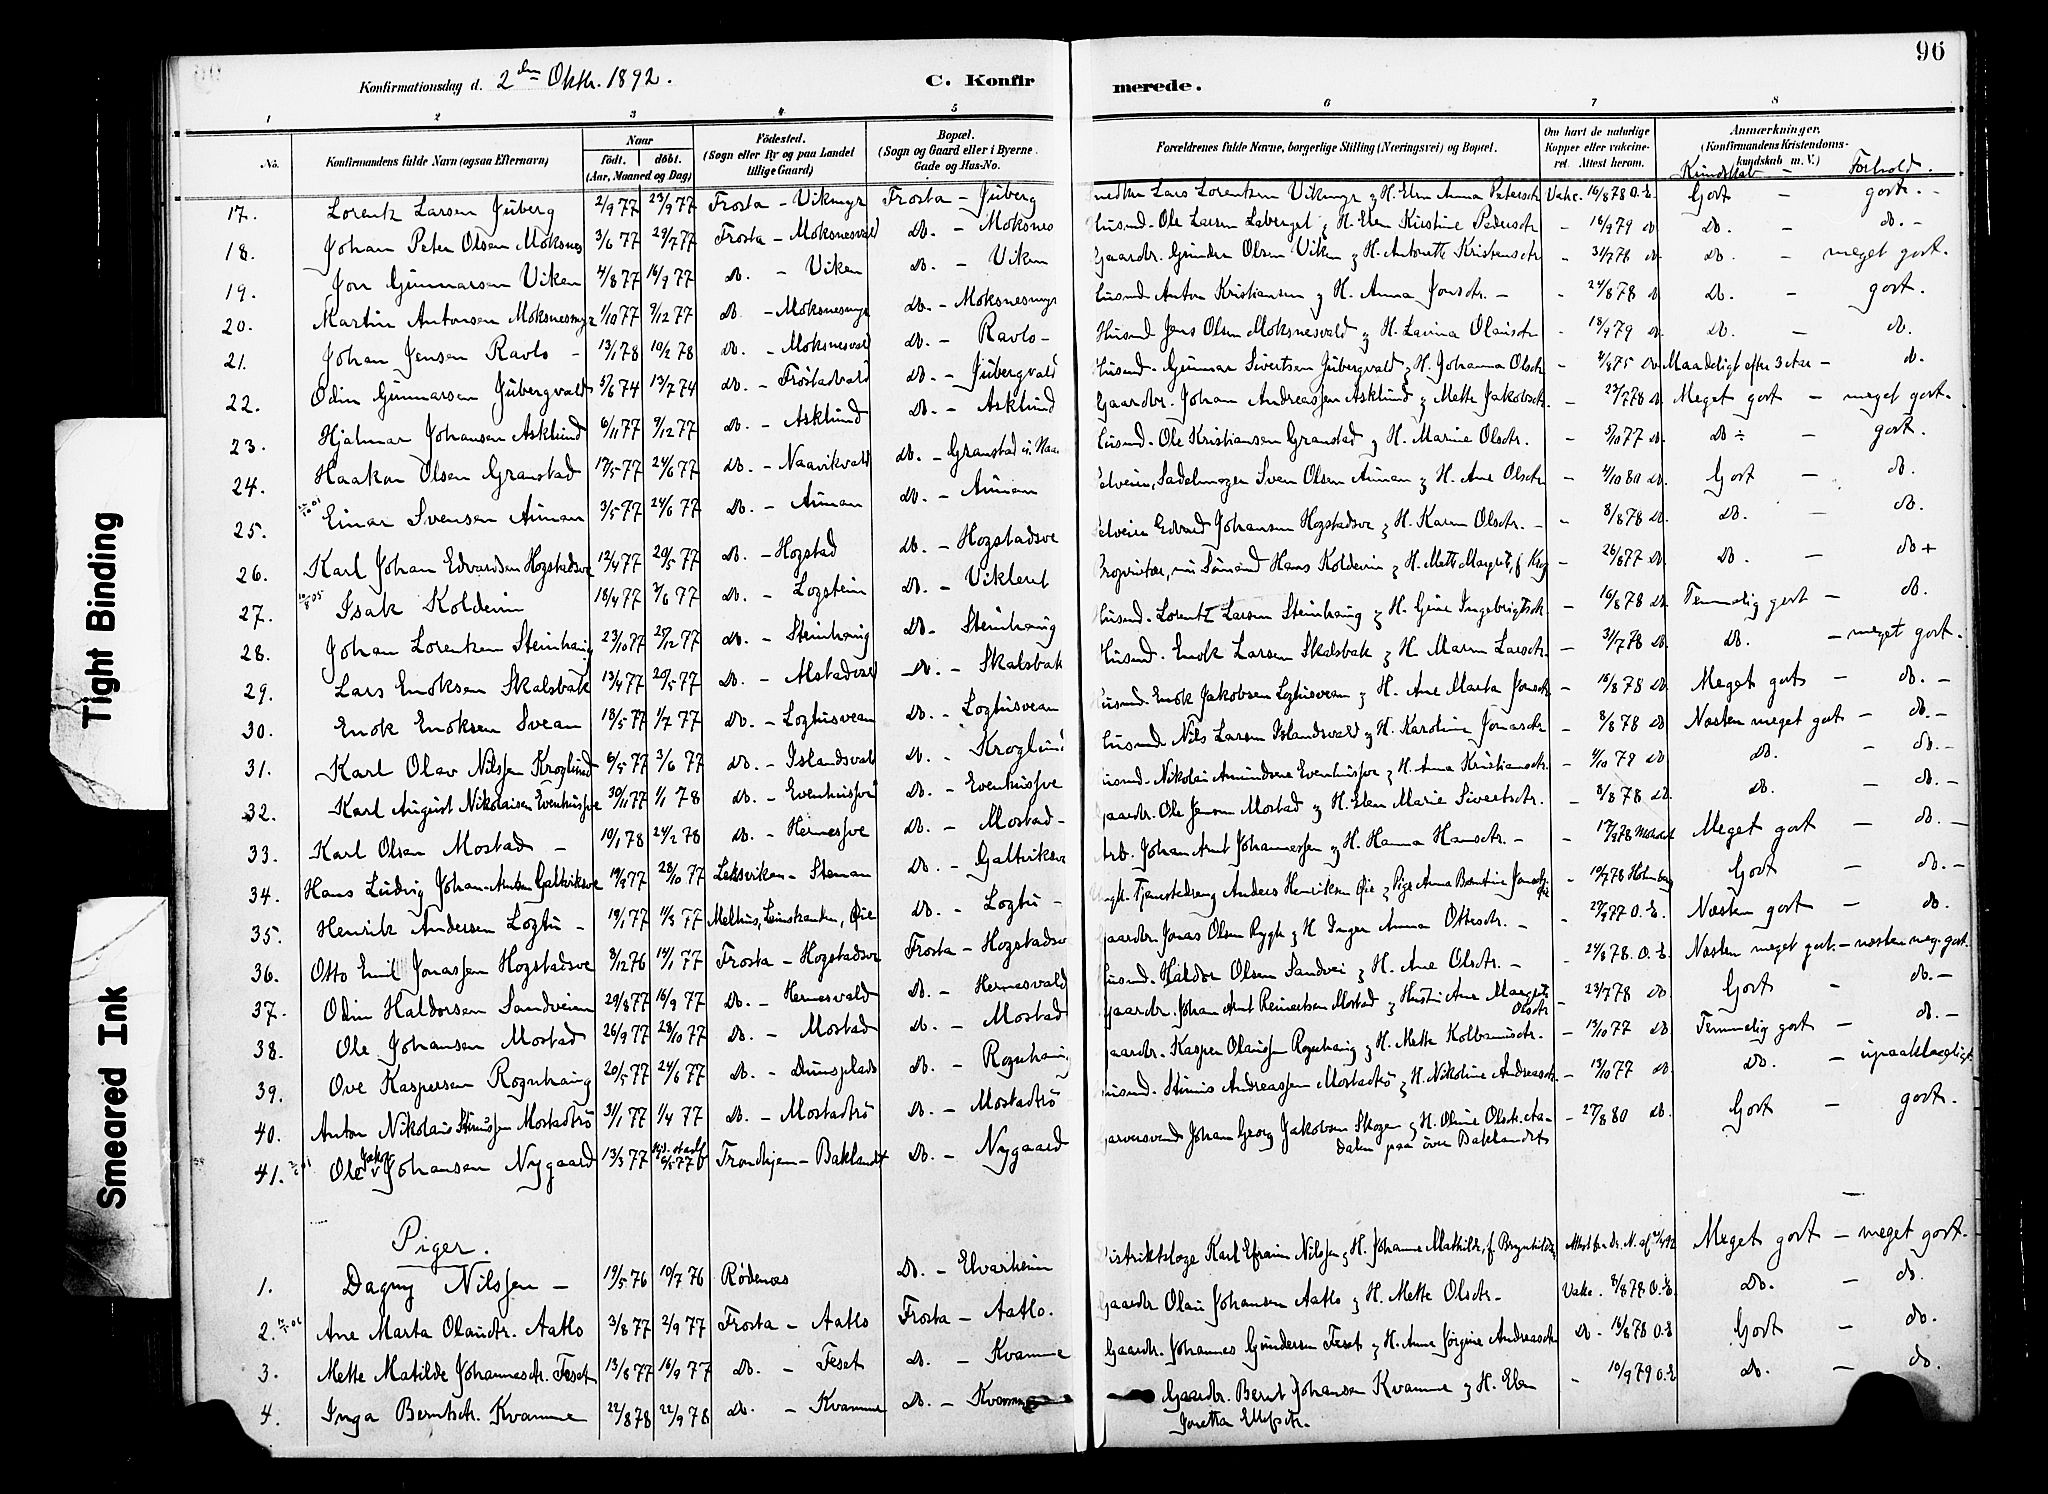 96
Konfirmationsdag d. 2den Oktbr. 1892.
C. Konfirmerede.
1 2 3 4 5 6 7 8
No. Konfirmandens fulde Navn (ogsaa Efternavn) Naar født. døbt. (Aar, Maaned og Dag) Fødested. (Sogn eller By og paa Landet tillige Gaard) Bopæl. (Sogn og Gaard eller i Byerne Gade og Hus-No. Forældrenes fulde Navne, borgerlige Stilling (Næringsvei) og Bopæl. Om havt de naturlige Kopper eller vaccineret. Attest herom. Anmærkninger. (Konfirmandens Kristendomskundskab m. V.) Kundskab - Forhold.
17. Lorents Larsen Juberg 2/9 77 23/9 77 Frosta - Vikmyr Frosta - Juberg Lars Lorentsen Vikmyr & H. Elen Anna Petersdtr Vakc. 16/8 78 O.E. Godt - godt. -
18. Johan Peter Olsen Moksnes 3/6 77 29/7 77 Frosta - Moksnesvald do. - Moksnes Husmd. Ole Larsen & H. Elen Kirstine Pedersdtr - 16/9 79 do do. - do. -
19. Jon Gunnarsen Viken 4/8 77 16/9 77 do. - Viken do. - Viken Gaardbr. Gunder Olsen Viken & H. Antonette Kristensdtr - 31/7 78 do do. - meget godt.
20. Martin Antonsen Moksnesmyr 1/10 77 9/12 77 do. - Moksnesmyr do. - Moksnesmyr Husmd. Anton Kristiansen & H. Anna Jonsdtr. - - 24/8 78 do do. - godt.
21. Johan Jensen Ravlo - 13/1 78 10/2 78 do. - Moksnesvald do. - Ravlo - Husmd Jens Olsen Moksnesvald & H. Lavina Olausdtr - 18/9 79 do. do. - do.
22. Odin Gunnarsen Jubergvald 5/6 74 13/7 74 do. - Frøstadvald do. - Jubergvald Husmd. Gunnar Sivertsen Jubergvald & H. Johanna Olsdtr - 4/9 75 do Maadeligt efter 3 Aar - do.
23. Hjalmar Johansen Asklund 6/11 77 9/12 77 do. - Asklund do. - Asklund Gaardbr. Johan Andreassen Asklund & Mette Jakobsdtr. - 23/7 78 do Meget godt - meget godt.
24. Haakon Olsen Granstad 17/5 77 24/6 77 do. - Naavikvald do. - Granstad Husmd. Ole Kristiansen Granstad & H. Marine Olsdtr. - 5/10 77 do. do ÷ - godt.
25. Einar Svensen Aunan 3/5 77 24/6 77 do. - Aunan do. - Aunan Selveier, Sadelmager Sven Olsen Aunan & H. Ane Olsdtr - 4/10 80 do. Godt - do.
26. Karl Johan Edvardsen Hogstadsve 12/4 77 20/5 77 do. - Hogstad do. - Hogstadsve Selveier Edvard Johansen Hogstadsve & H. Karen Olsdtr. - - 8/8 78 do. do. do.
27. Isak Koldevin 18/4 77 3/6 77 do. - Logstein do. - Vikleret Proprietær, nu Sømand Hans Koldevin & H. Mette Margret, f. Krog - 26/6 77 do do. - do +
28. Johan Lorentsen Steinhaug 23/10 77 25/12 77 do. - Steinhaug do. - Steinhaug Husmd. Lorentz Larsen Steinhaug & H. Gine Ingebrigtsdtr. - 16/8 78 do. Temmelig godt - do.
29. Lars Enoksen Skalsbak 13/4 77 20/5 77 do. - Alstadvald do. - Skalsbak Husmd. Enok Larsen Skalsbak & H. Maren Larsdtr. - 31/7 78 do. do. - meget godt.
30. Enok Enoksen Svean 18/5 77 1/7 77 do. - Logtusvean do. - Logtusvean Husmd. Enok Jakobsen Logtusvean & H. Ane Marta Jonsdtr - 16/8 78 do. Meget godt - do. -
31. Karl Olav Nilssen Kroglund 6/5 77 3/6 77 do. - Islandsvald do. - Kroglund Husmd. Nils Larsen Islandsvald & H. Karoline Jonasdtr - 8/8 78 do Næsten meget godt - do. -
32. Karl August Nikolaisen Evenhussve 30/11 77 1/1 78 do. - Evenhussve do. - Evenhussve Husmd. Nikolai Amundsen Evenhussve & H. Anna Kristiansdtr. - 4/10 79 do do. - do. -
33. Karl Olsen Mostad - 10/1 78 24/2 78 do. - Hernessve do. - Mostad - Gaardbr. Ole Jensen Mostad & H. Elen Marie Sivertsdtr. - 8/8 78 do. do. - do. -
34. Hans Ludvig Johan-Arntsen Galtviksve 19/9 77 28/10 77 Leksviken - Steman do. - Galtviksve Arb. Johan Arnt Johannessen & H. Hanna Hansdtr. - - 17/9 78 Meget godt - do. -
35. Henrik Andersen Logtu - 19/1 77 11/3 77 Melhus, Leinstranden, Øie do. - Logtu - Ungk. Tjenestedreng Anders Henriksen Øie & Pige Anna Berntine - 19/7 78 Holmberg Godt - do. -
36. Otto Emil Jonassen Hogstadsve 8/12 76 14/1 77 Frosta - Hogstadsve Frosta - Hogstadsv Gaardbr. Jonas Olsen Rygh & H. Inger Anna Ottesdtr. - - 29/9 77 O.E. Næsten godt - do.
37. Odin Haldorsen Sandveien 29/8 77 16/9 77 do. - Hernesvald do. - Hernesvald Husmd. Haldor Olsen Sandvei & H. Ane Olsdtr. - - 24/8 78. O.E. Næsten meget godt. - næsten meg. godt.
38. Ole Johansen Mostad 26/9 77 28/10 77 do. - Mostad do. - Mostad Gaardbr. Johan Arnt Reinertsen Mostad & Hustru Ane Margrete Olsdtr - 23/7 78 do. Godt - do. -
39. Ove Kaspersen Rognhaug 20/5 77 24/6 77 do. - Dunsplads do. - Rognhaug Gaardbr. Kasper Olaussen Rognhaug & H. Mette Kolbanusdtr. - 13/10 77 do Temmelig godt - do. -
40. Anton Nikolaus Steinussen Mostadtrø 31/1 77 1/4 77 do. - Mostadtrø do. - Mostadtrø Husmd. Steinus Andreassen Mostadtrø & H. Nikoline Andreasdtr. - 13/10 77 do do. - upaaklageligt
41. Ole Jakob Johansen Nygaard 13/3 77 6/5 77 Trondhjem - Baklandet do. - Nygaard Garversvend Johan Georg Jakobsen Skogen & H. Oline Olsdtr. Aadalen paa øvre Baklandet - 27/8 80 do. Godt - godt.
Piger.
1. Dagny Nilssen - 19/5 76 10/7 76 Rødenes do. - Elvarheim Distriktslæge Karl Efraim Nilssen & H. Johanne Mathilde, f. Brynhildsen Attest fra Dr. N. af 92 Meget godt - meget godt.
2. Ane Marta Olausdtr. Aatlo 3/8 77 2/9 77 Frosta - Aatlo Frosta - Aatlo. Gaardbr Olaus Johansen Aatlo & H. Mette Olsdtr - Vakc. 8/8 78 O.E. do. - do.
3. Mette Matilde Johannesdtr. Feset 13/8 77 16/9 77 do. - Feset do. - Kvamme Gaardbr. Johannes Gundersen Feset & H. Anne Jørgine Andreasdtr do. - 16/8 78 O.E Godt - do.
4. Inga Berntsdtr. Kvamme 22/8 78 22/9 78 do. - Kvamme do. - Kvamme Gaardbr. Bernt Johansen Kvamme & H. Elen Joretta Ellefsdtr. - 10/9 79 O.E do. - do.
Tight Binding
Smeared Ink